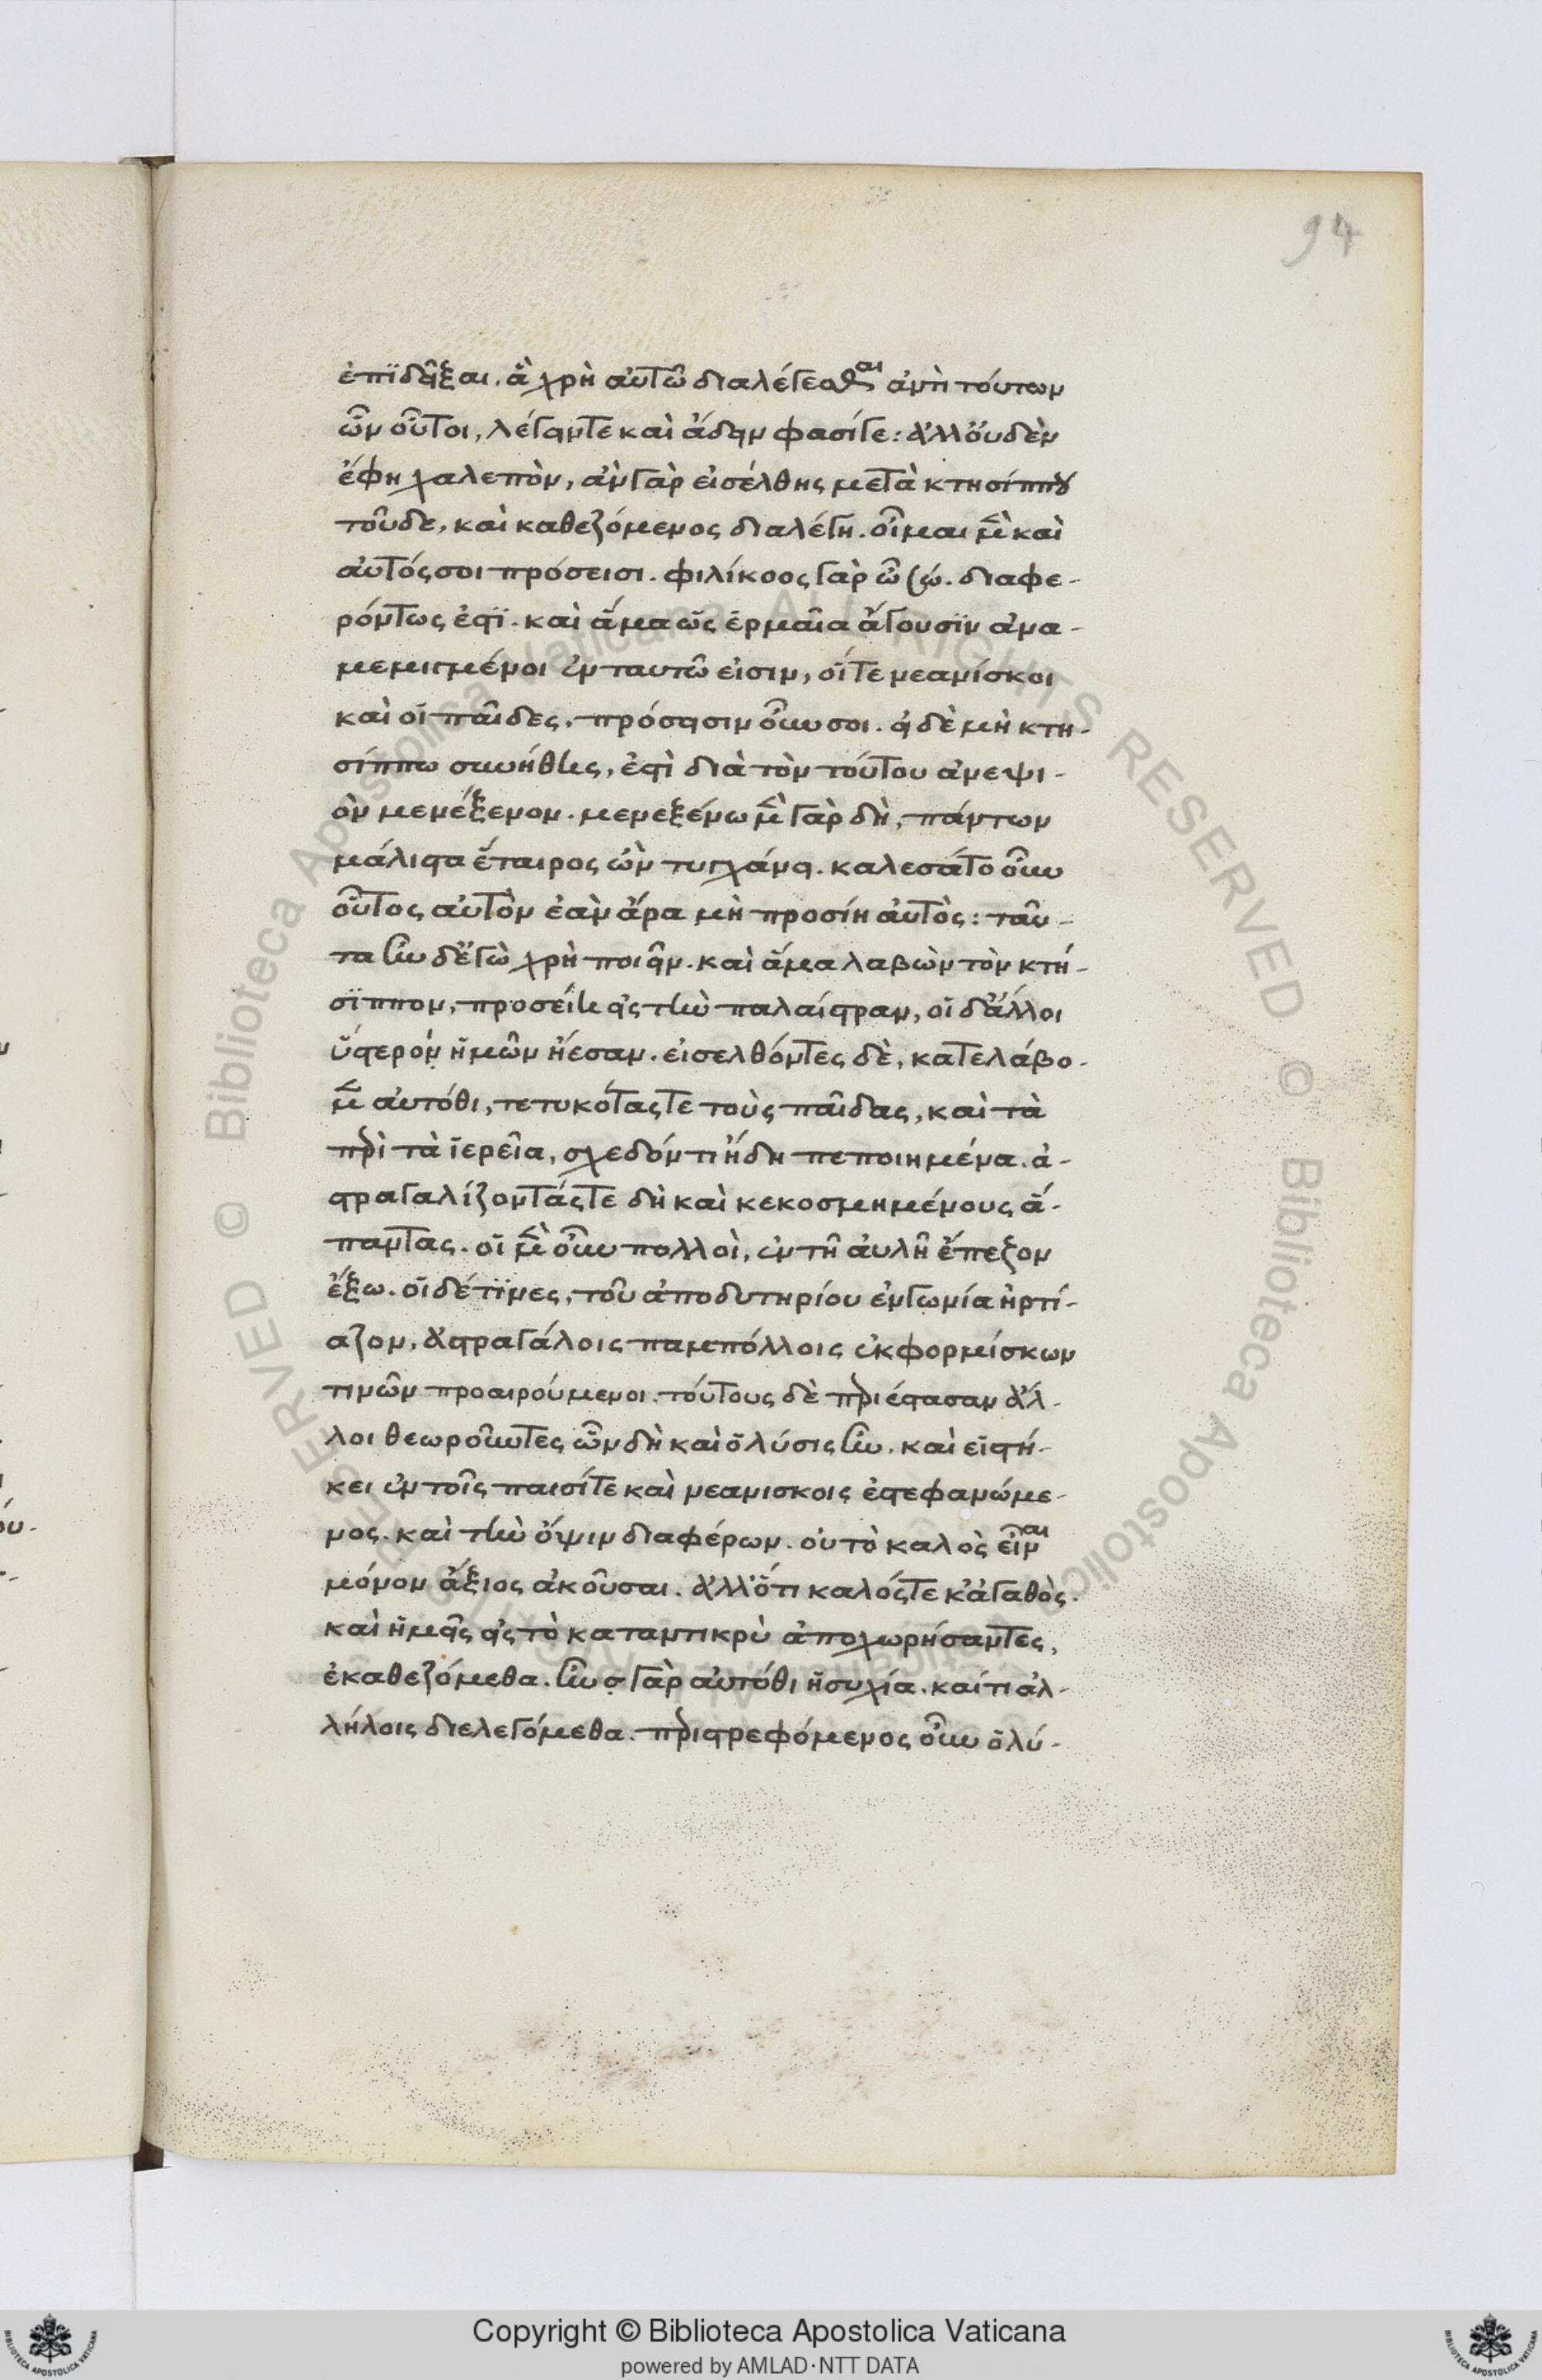 94
ἐπϊδεῖξαι. ἃ χρὴ αὐτῶ διαλέγεσθαι ἀντὶ τούτων
ὧν οὗτοι, λέγειντε καὶ ἄδειν φασίγε: ἀλλ' οὐδὲν
ἔφη χαλεπὸν, ἂν γὰρ εἰσέλθης μετὰ κτησίππου
τοῦδε, καὶ καθεζόμενος διαλέγη. οἶμαι μὲν καὶ
αὐτός σοι πρόσεισι. φιλήκοος γὰρ ὦ σώ. διαφε-
ρόντως ἐστϊ. καὶ ἅμα ὡς ἑρμαῖα ἄγουσϊν ἀνα-
μεμιγμένοι ἐν ταυτῶ εἰσιν, οἵ τε νεανίσκοι
καὶ οἱ παῖδες. πρόσεισιν οὖν σοι. εἰ δὲ μὴ κτη-
σίππω συνήθης, ἐστὶ διὰ τὸν τούτου ἀνεψι-
ὸν μενέξενον. μενεξένω μὲν γὰρ δὴ, πάντων
μάλιστα ἕταιρος ὢν τυγχάνει. καλεσάτο οὖν
οὗτος αὐτὸν ἐὰν ἄρα μὴ προσίη αὐτὸς: ταῦ-
τα ἦν δ' ἐγὼ χρὴ ποιεῖν. καὶ ἅμα λαβὼν τὸν κτή-
σϊππον, προσήειν εἰς τὴν παλαίστραν, οἱ δ' ἄλλοι
ὕστερον ἡμῶν ἤεσαν. εἰσελθόντες δὲ, κατελάβο-
μεν αὐτόθι, τετυκότας τε τοὺς παῖδας, καὶ τὰ
περὶ τὰ ἱερεῖα, σχεδόν τι ἤδη πεποιημένα. ἀ-
στραγαλίζοντάς τε δὴ καὶ κεκοσμημένους ἅ-
παντας. οἱ μὲν οὖν πολλοὶ, ἐν τῆ αὐλῆ ἔπεζον
ἔξω. οἱ δέ τϊνες, τοῦ ἀποδυτηρίου ἐν γωνία ἠρτί-
αζον, ἀστραγάλοις παμπόλλοις ἐκ φορμίσκων
τινῶν προαιρούμενοι. τούτους δὲ περιέστασαν ἄλ-
λοι θεωροῦντες ὧν δὴ καὶ ὁ λύσις ἦν. καὶ εἱστή-
κει ἐν τοῖς παισί τε καὶ νεανισκοις ἐστεφανώμε-
νος. καὶ τὴν ὄψιν διαφέρων. οὐ τὸ καλὸς εἶναι
μόνον ἄξιος ἀκοῦσαι. ἀλλ' ὅτι καλός τε κἀγαθὸς.
καὶ ἡμεῖς εἰς τὸ καταντικρὺ ἀποχωρήσαντες,
ἐκαθεζόμεθα. ἦν γὰρ αὐτόθι ἡσυχία. καί τι ἀλ-
λήλοις διελεγόμεθα. περιστρεφόμενος οὖν ὁ λύ-
Copyright © Biblioteca Apostolica Vaticana
powered by AMLAD·NTT DATA